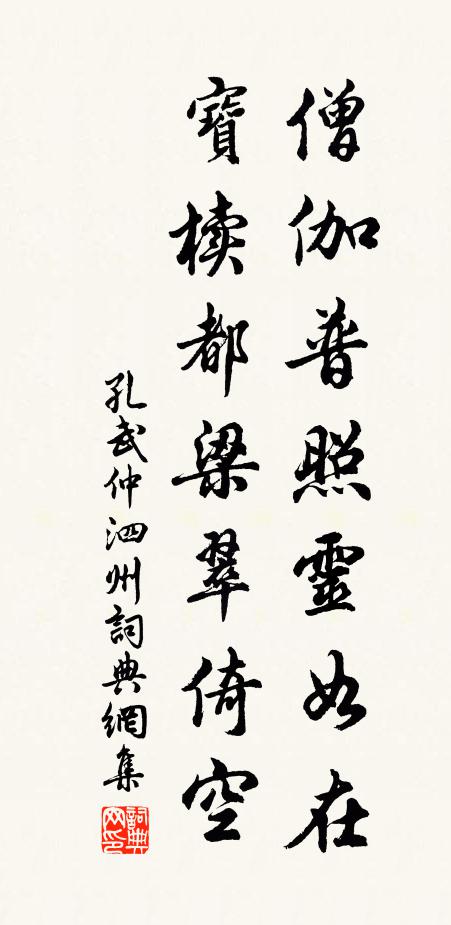 僧伽普照靈如在
寶櫝都梁翠倚空
孔武仲泗州詞典網集
詞典网印